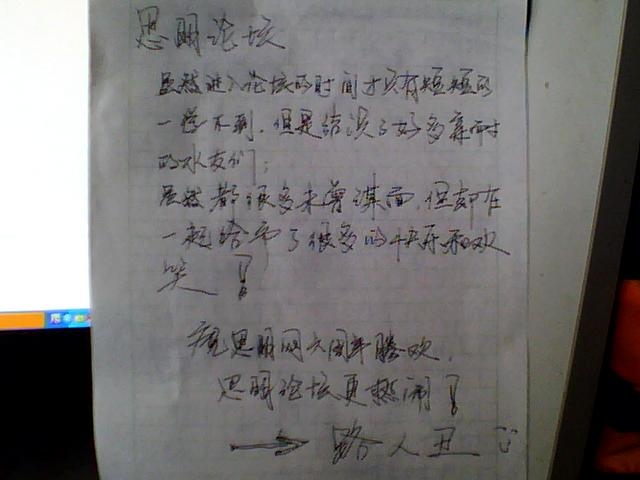 思明论坛
虽然进入论坛的时间才只有短短的
一卷不到，但是结识了好多亲耐
的水友们；
虽然都很多未曾谋面，但却在
一起给予了很多的快乐和欢
笑！
祝思明网六周年腾欢，
思明论坛更热闹！
→ 路人丑